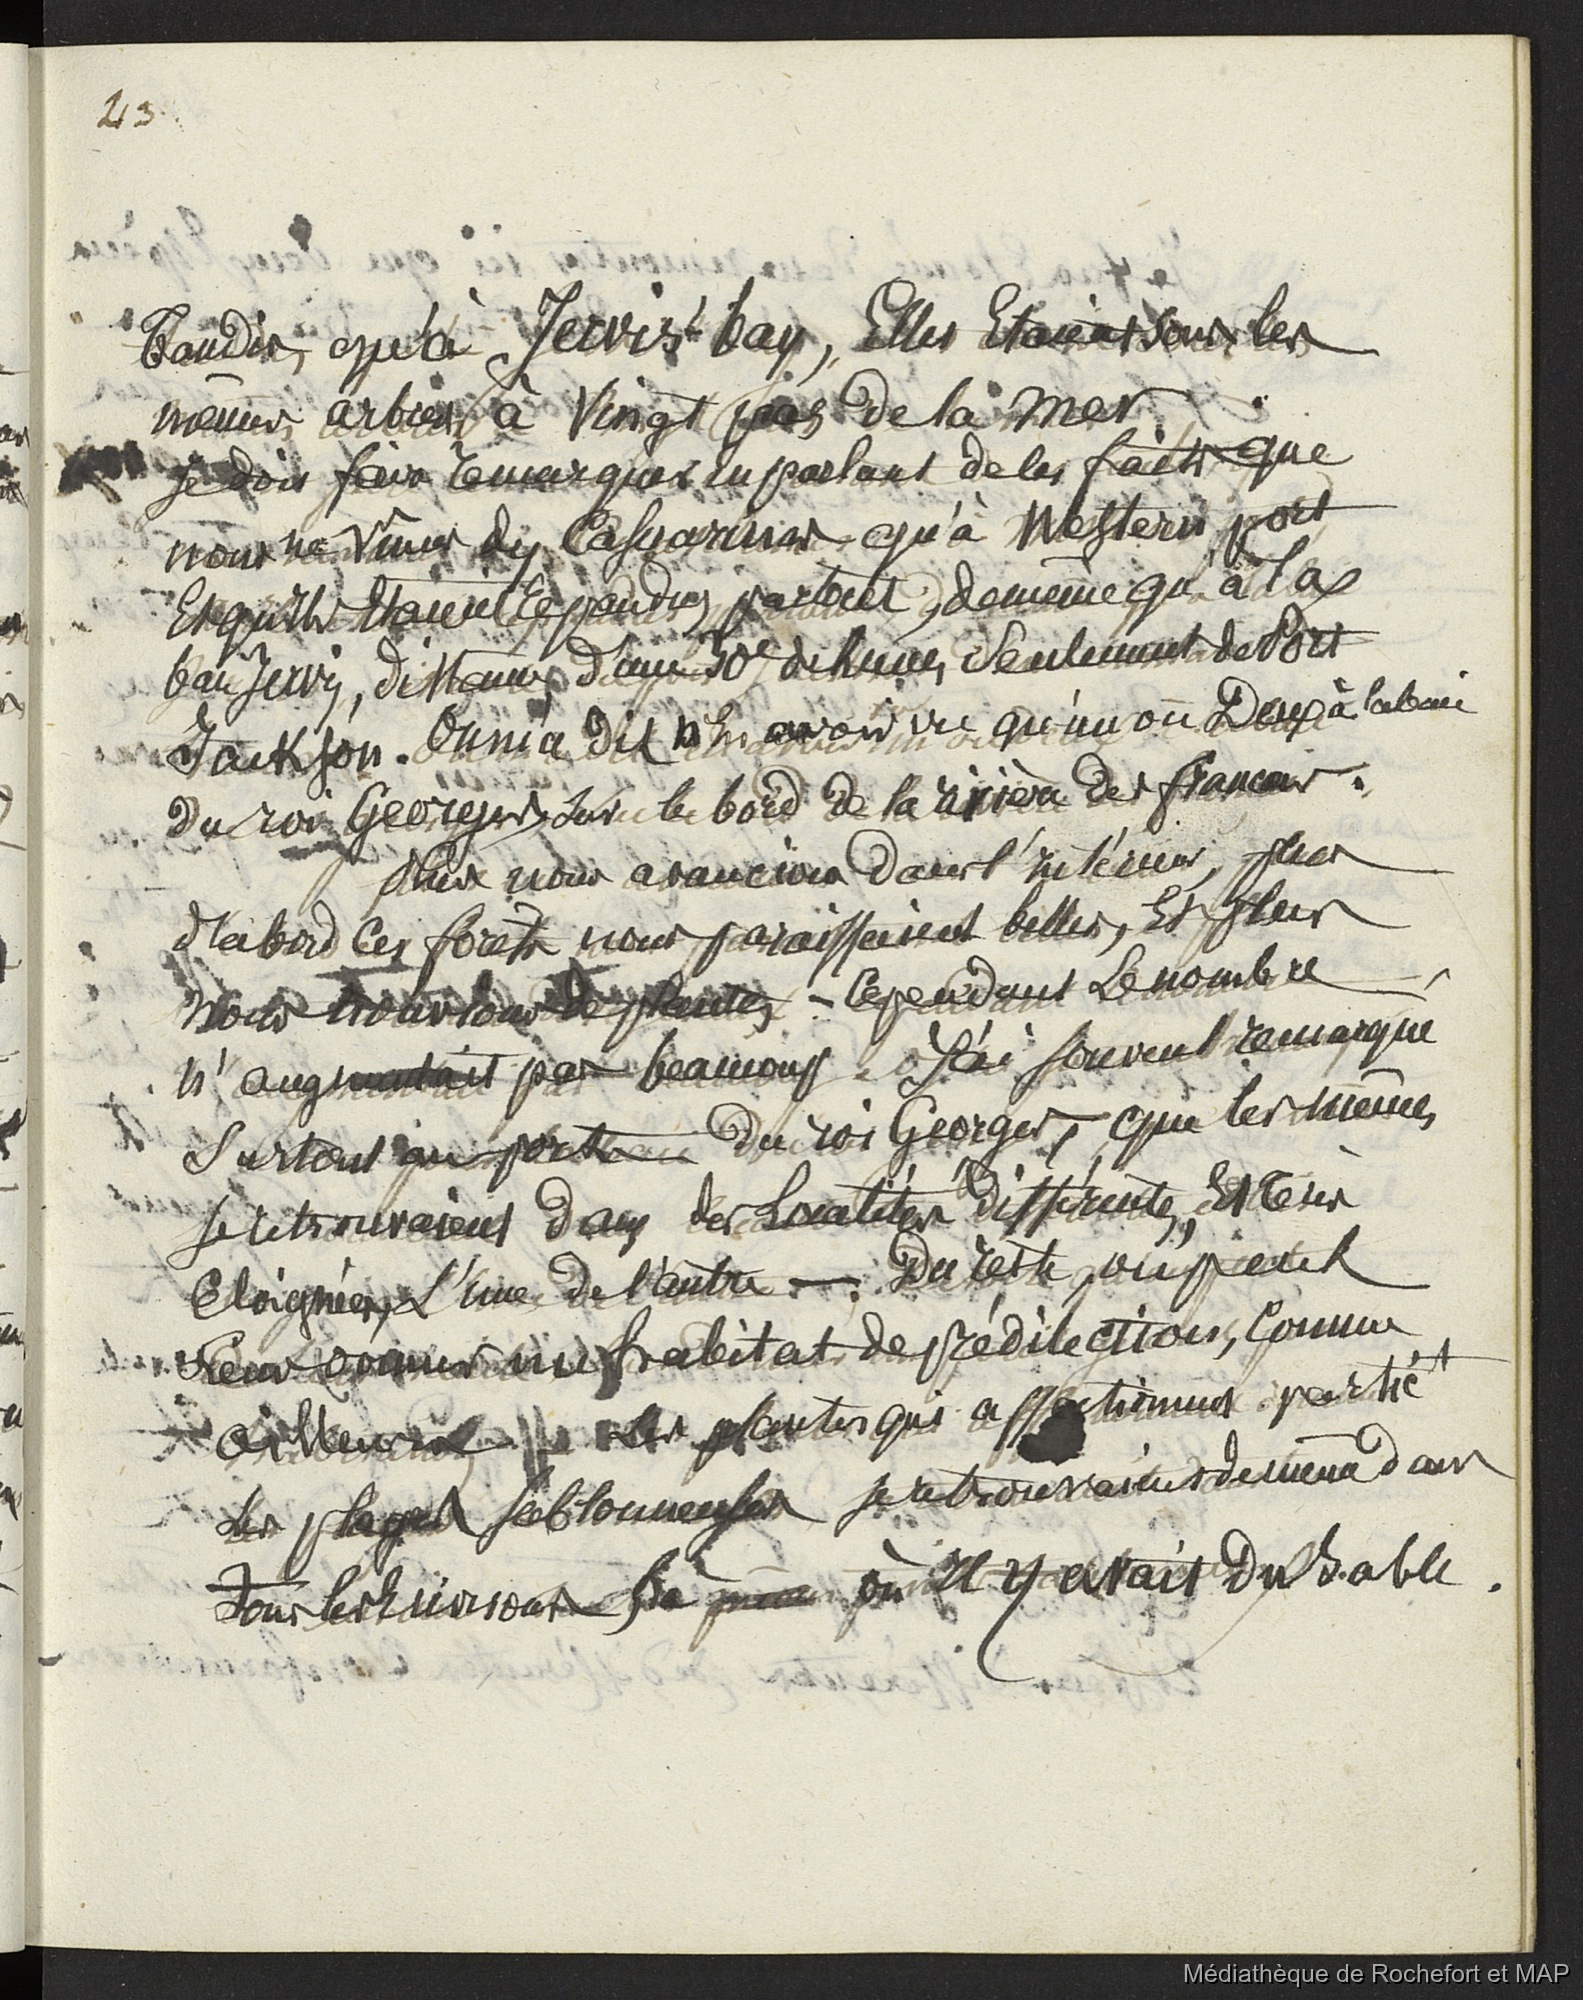 23
Tandis, qu'à Jervis' bay, Elles Etaient sous les
mêmes arbres, à Vingt pas de la mer.
je dois faire remarquer en parlant de les faits que
nous ne Vimes dy Casuarinas qu'à Western port
Et qu'ils Etaient Epandus partout, de même qu'à la
baie Jervis, distante, d'une 30e de lieues, Seulement de Port
Jackson. On m'a dit n'En avoir vu qu'un ou Deux à la baie
Du roi Georges, sur le bord de la rivière des français.
plus nous avancions dans l'intérieur, plus
d'abord Ces forêts nous paraissaient belles, Et plus
Nous trouvions de plantes, - Cependant Le nombre
n'augmentait pas beaucoup. J'ai souvent remarque
Surtout au port Du roi Georges, que les mêmes,
se retrouvaient dans des Localités différentes, Et très
Eloignées, L'une de l'autre —. Du reste, on peut
Leur donner un habitat de prédilection, Comme
ailleurs - Les plantes qui affectionnent partict
Les plages sablonneuses se retrouvaient de même dans
Tous les Environs, où Il y avait Du Sable.
Médiathèque de Rochefort et MAP